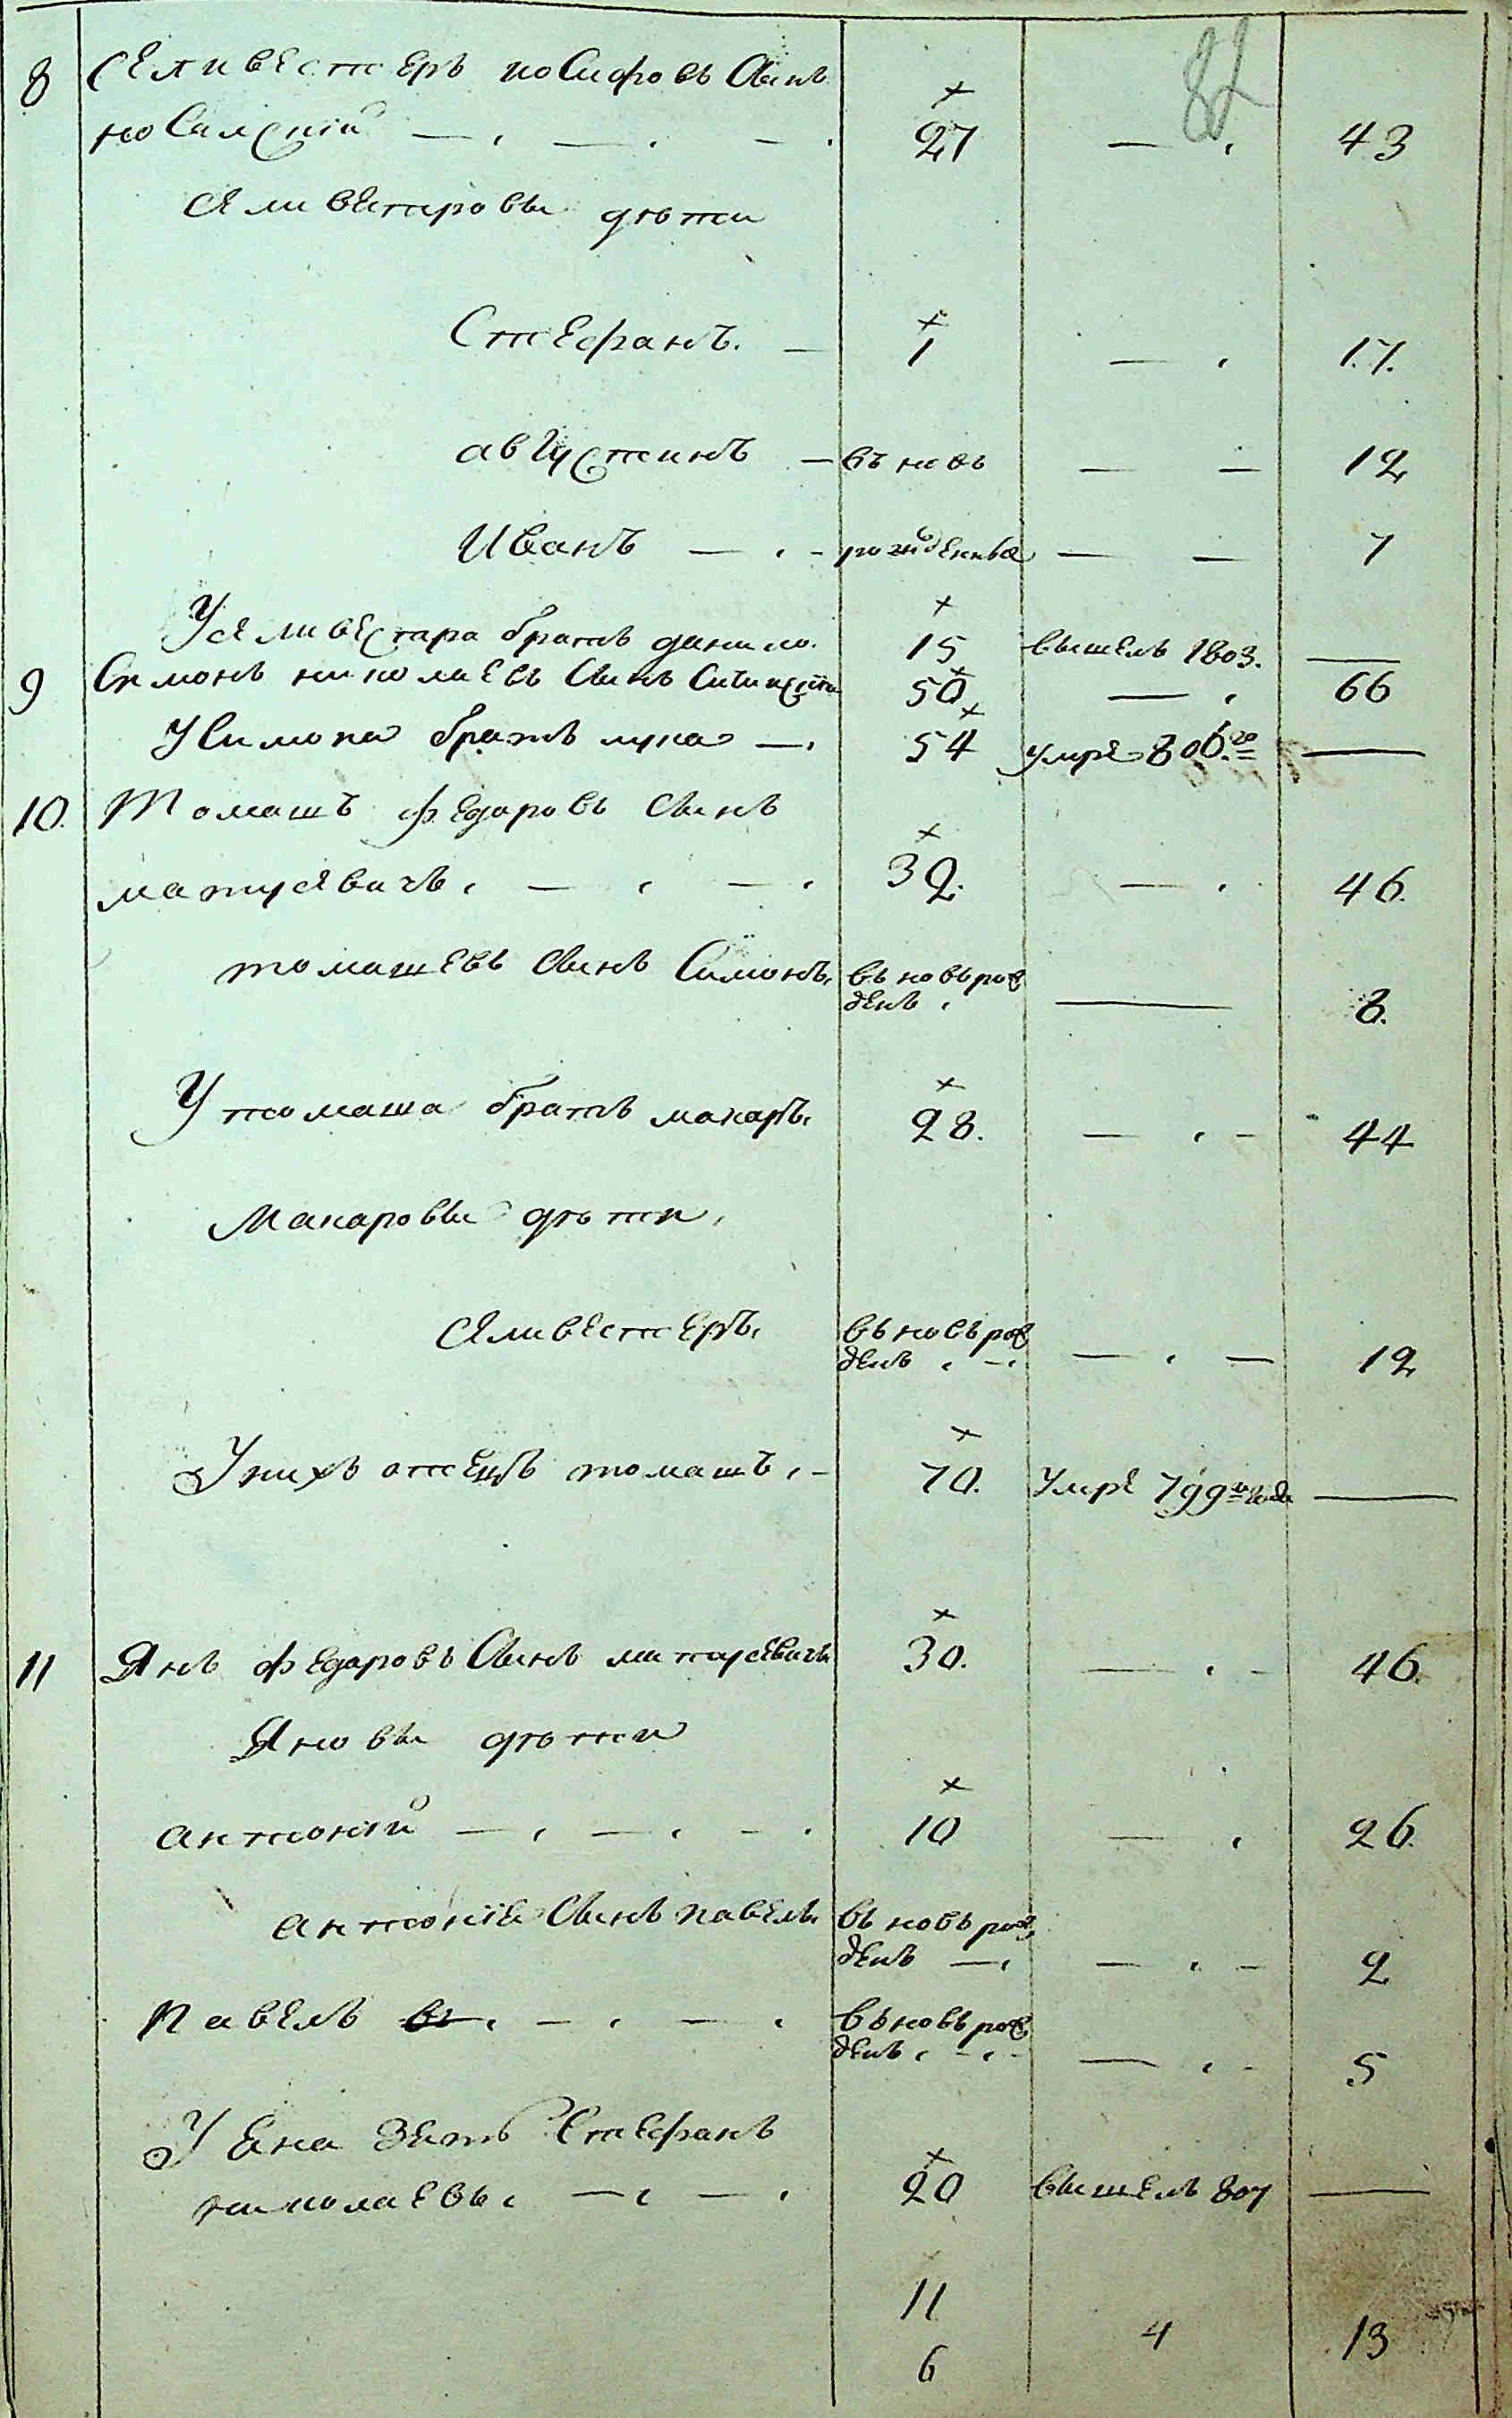 82
8 Селивестеръ иосифовъ Сынъ
27 — 43
Селивестровы дѣти
Стефанъ. — 1 — 17.
августинъ — въ новь — — 12
Иванъ — рожденные — — 7
У Селивестра братъ данило. 15 вышелъ 1803. —
9 Симонъ николаевъ Сынъ 50 — 66
У Симона братъ лука — 54 умре 806.го —
10. Томашъ федаровъ Сынъ
матусевичъ — — 32. — 46.
томашевъ Сынъ Симонъ въ новь рож
денъ — 8.
У томаша братъ макаръ 28. — — 44
Макаровы дѣти
Селивестеръ въ новь рож
денъ — — — 12
У нихъ отецъ томашъ — 70. Умре 799го года —
11 Янъ федаровъ Сынъ матусевичъ 30. — — 46.
Яновы дѣти
антоній — — — 10 — 26.
антонія Сынъ павелъ въ новь рож
денъ — — — 2
Павелъ — — въ новь рож
денъ — — — 5
У Яна зять Стефанъ
николаевъ — — 20 вышелъ 807 —
11
6 4 13